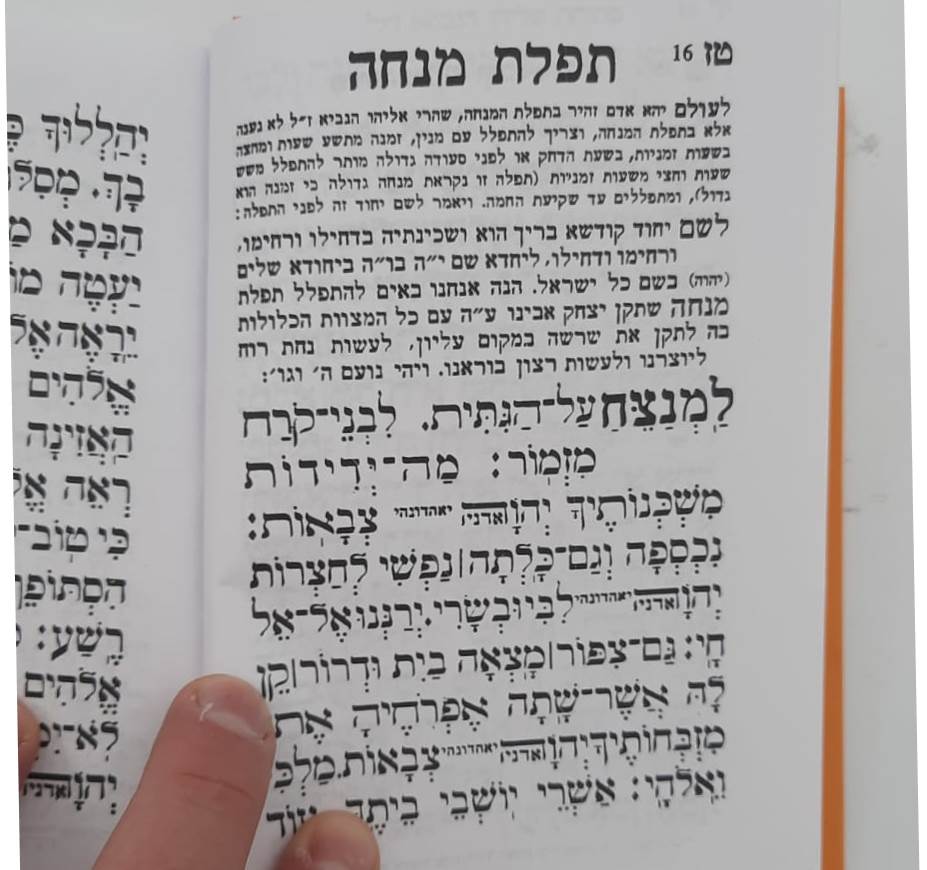 טז 16
תפלת מנחה
לעולם יהא אדם זהיר בתפלת המנחה, שהרי אליהו הנביא ז״ל לא נענה
אלא בתפלת המנחה, וצריך להתפלל עם מנין, זמנה מתשע שעות ומחצה
בשעות זמניות, בשעת הדחק או לפני סעודה גדולה מותר להתפלל משש
שעות וחצי משעות זמניות (תפלה זו נקראת מנחה גדולה כי זמנה הוא
גדול), ומתפללים עד שקיעת החמה. ויאמר לשם יחוד זה לפני התפלה:
לשם יחוד קודשא בריך הוא ושכינתיה בדחילו ורחימו,
ורחימו ודחילו, ליחדא שם י״ה בו״ה ביחודא שלים
(יהוה) בשם כל ישראל. הנה אנחנו באים להתפלל תפלת
מנחה שתקן יצחק אבינו ע״ה עם כל המצוות הכלולות
בה לתקן את שרשה במקום עליון, לעשות נחת רוח
ליוצרנו ולעשות רצון בוראנו. ויהי נועם ה׳ וגו׳:
לַמְנַצֵּחַ עַל־הַגִּתִּית. לִבְנֵי־קֹרַח
מִזְמוֹר: מַה־יְּדִידוֹת
מִשְׁכְּנוֹתֶיךָ יְהֹוָה אדני יאהדונהי צְבָאוֹת:
נִכְסְפָה וְגַם־כָּלְתָה|נַפְשִׁי לְחַצְרוֹת
יְהֹוָה אדני יאהדונהי לִבִּי וּבְשָׂרִי. יְרַנְּנוּ אֶל־אֵל
חָי: גַּם־צִפּוֹר|מָצְאָה בַיִת וּדְרוֹר|קֵן
לָהּ אֲשֶׁר־שָׁתָה אֶפְרֹחֶיהָ אֶת
מִזְבְּחוֹתֶיךָ יְהֹוָה אדני יאהדונהי צְבָאוֹת. מַלְכִּי
וֵאלֹהָי: אַשְׁרֵי יוֹשְׁבֵי בֵיתֶךָ עוֹד
יְהַלְלוּךָ
בָךְ.
הַבָּכָא
יַעְטֶה
יֵרָאֶה
אֱלֹהִים
הַאֲזִינָה
רְאֵה
כִּי טוֹב־
הִסְתּוֹפֵף
רֶשַׁע:
אֱלֹהִים
לֹא־
יְהֹוָה אדני